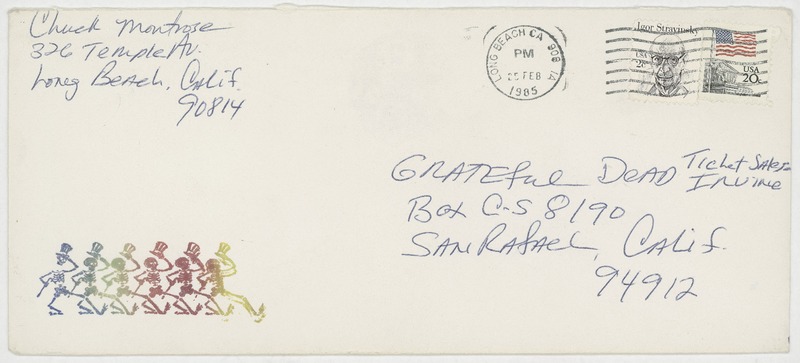 Chuck Montrose
326 Temple Av.
Long Beach, Calif.
90814
LONG BEACH CA 908 14
PM
25 FEB
1985
Igor Stravinsky
USA
2¢
USA
20c
GRATEFUL DEAD Ticket Sales-
IRVINE
Box C-S 8190
SAN RAFAEL, CALIF.
94912